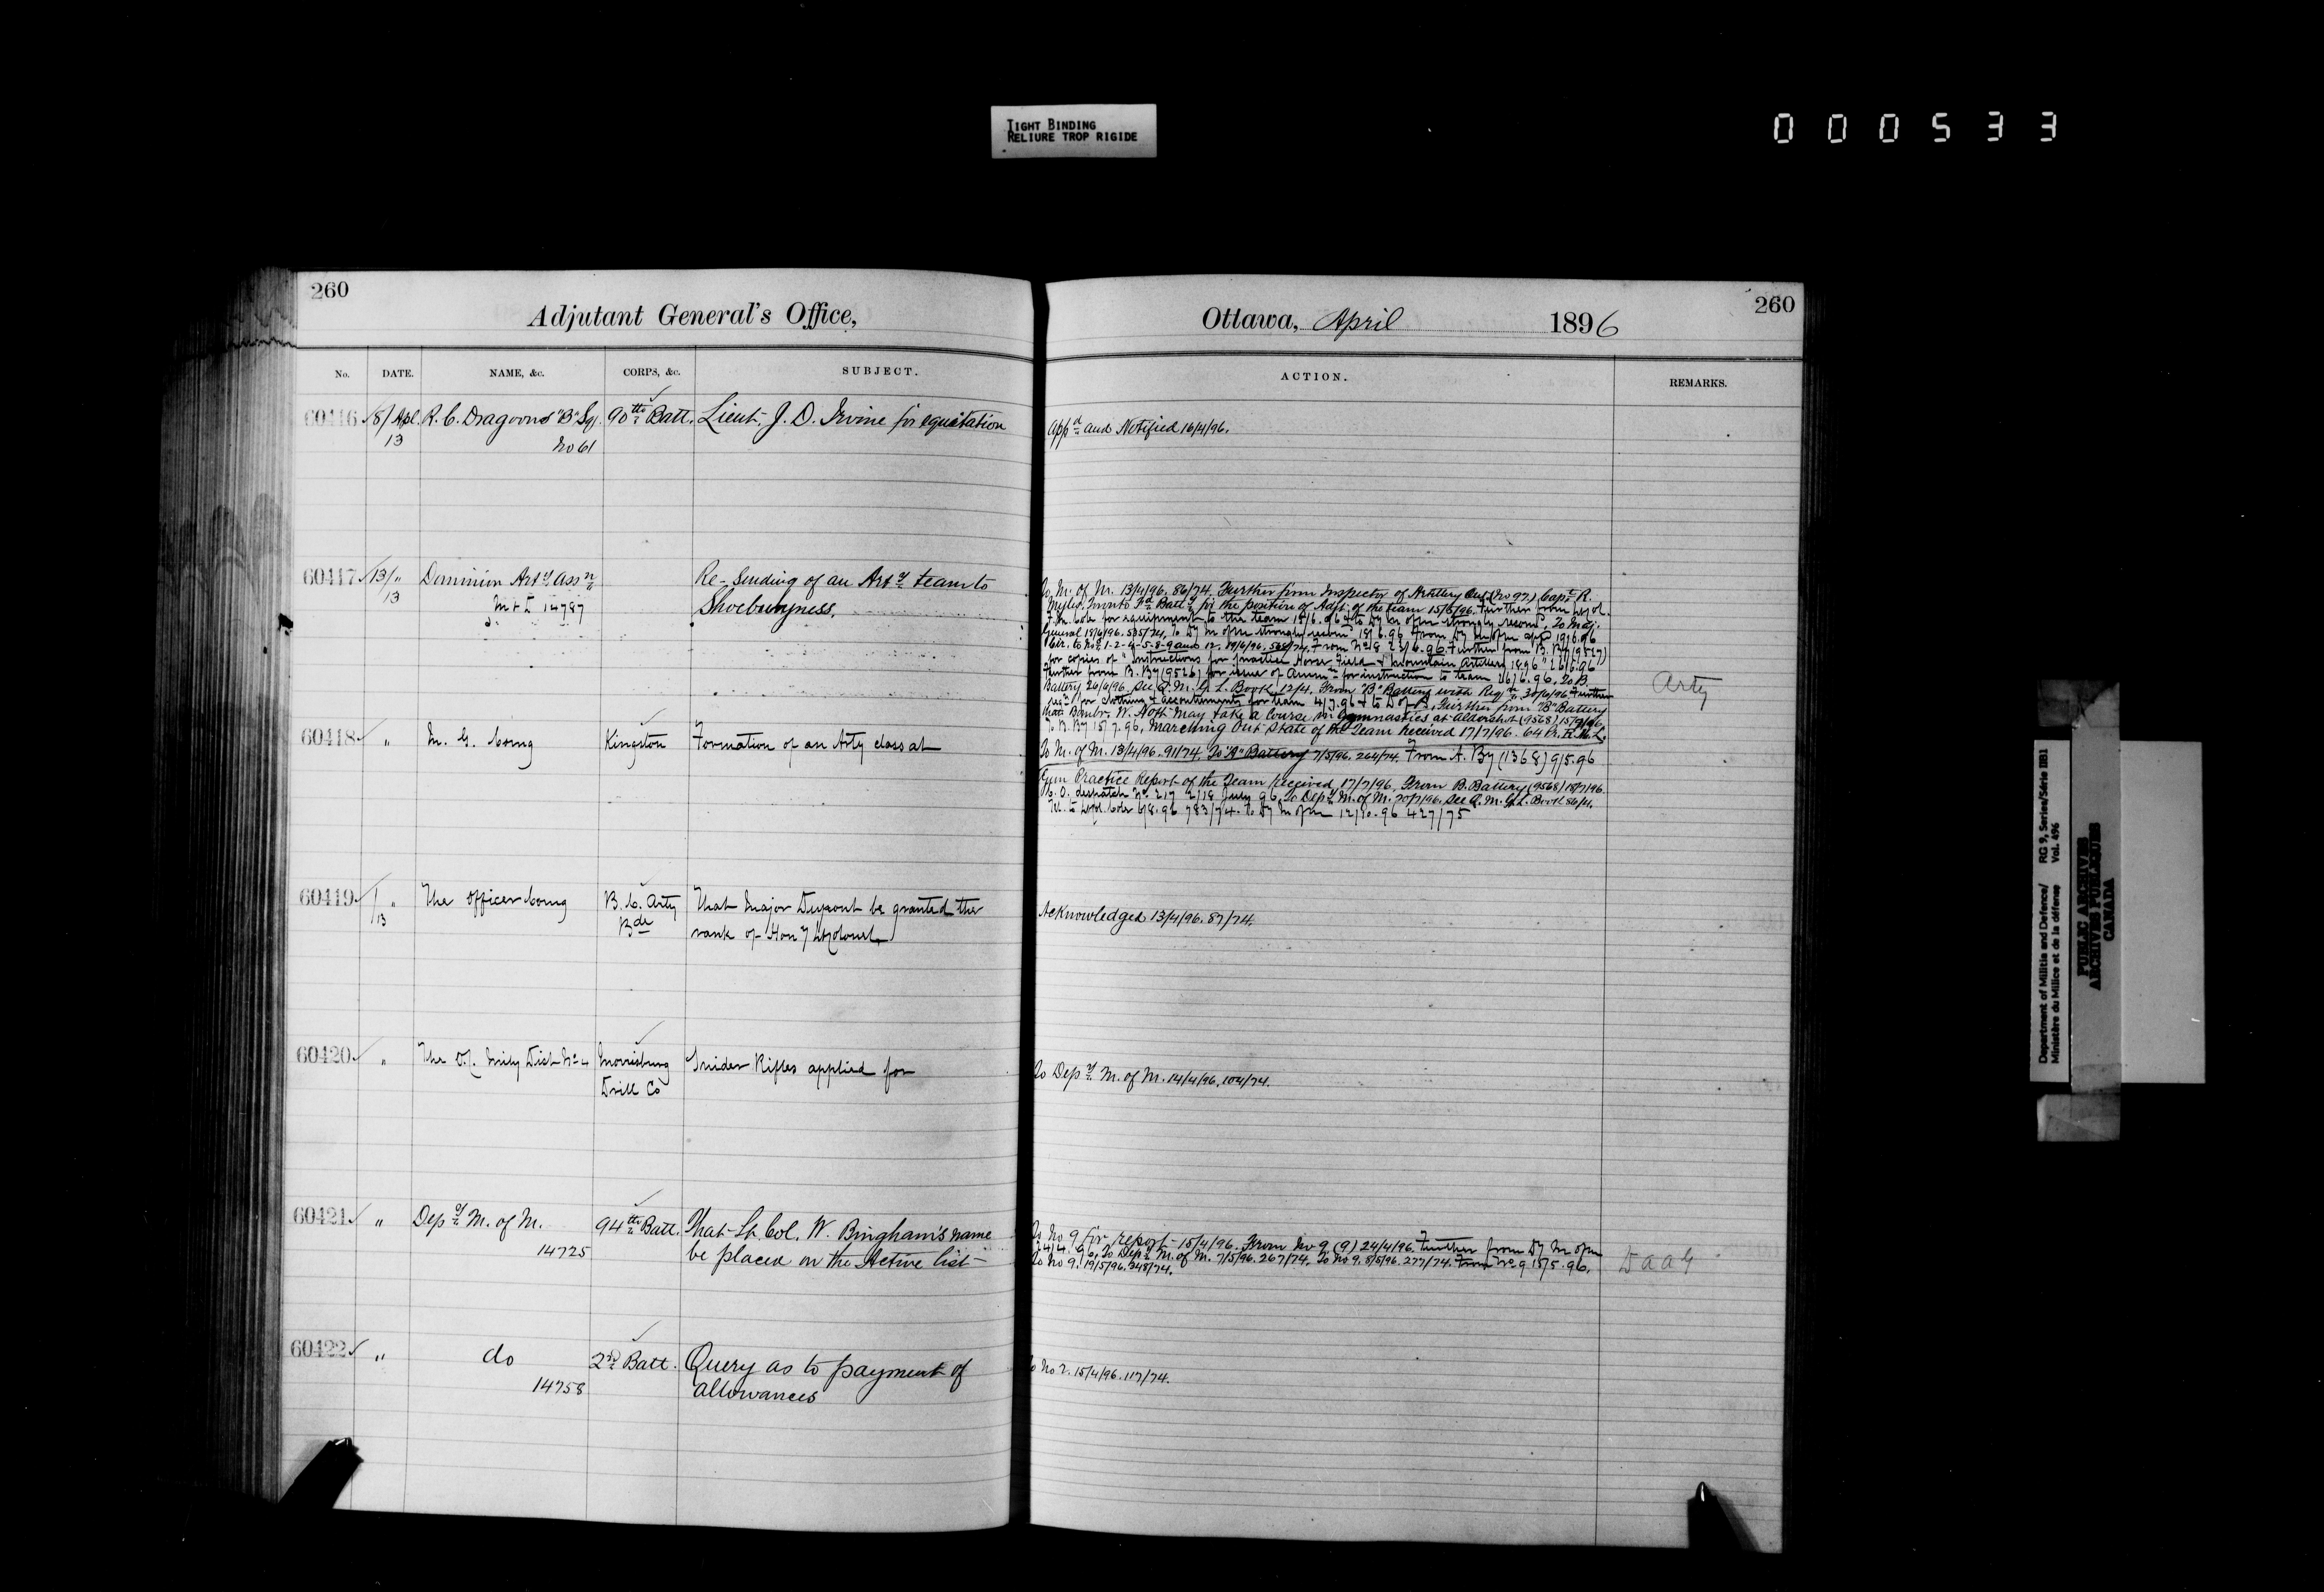 TIGHT BINDING
RELIURE TROP RIGIDE
000533
260
Adjutant General's Office,
No. DATE. NAME, &c. CORPS, &c. SUBJECT.
60416 8/Apl. R. C. Dragoons "B" Sq. 90th Batt. Lieut. J. D. Irvine for equitation
13 No 61
60417 13/ " Dominion Arty Assn Re- Sending of an Arty team to
13 M & D 14787 Shoeburyness.
60418 " M. G. Comg Kingston Formation of an Arty class at
60419 / " The Officer Comg B. C. Arty That Major Dupont be granted the
13 Bde rank of Hony Lt Colonel
60420 " The D.O.C. Mily Dist No 4 Morrisburg Snider Rifles applied for
Drill Co
60421 " Depy M. of M. 94th Batt. That Lt. Col. W. Bingham's name
14725 be placed on the Active list
60422 " do 2nd Batt. Query as to payment of
14758 allowances
260
Ottawa, April 1896
ACTION. REMARKS.
Appd and Notified 16/4/96.
To M. of M. 13/4/96. 86/74. Further from Inspector of Artillery (No 97) Capt R.
Myles, Toronto Fd Batty for the position of Adjt of the team 15/6/96. Further from Lt Col.
F. M. Cole for equipment to the team to Dy M of M strongly recomd. To Maj.
General 18/6/96. To Dy M of M strongly recomd 18.6.96 From Dy M of M appd 19.6.96
Cir. to Nos 1-2-4-5-8-9 and 12. 19/6/96. From No 8 23/6.96. Further from B. By (9527)
for copies of "Instructions for practice Horse Field & Mountain Artillery 1896" 26/6.96
Further from B. By (9526) for issue of Ammn for instruction to team 26/6.96. To B.
Battery 26/6/96. See Q. M. G. L. Book 12/4. From "B" Battery with Reqn 30/6/96 Further
reqn for clothing & accoutrements for team 4/7.96 & to D of S. Further from "B" Battery
that Bombr. W. Nott may take a Course in Gymnastics at Aldershot (9568) 15/7/96.
To B. By 15/7.96. Marching Out State of the Team received 17/7/96.
To M. of M. 13/4/96. 91/74. To "A" Battery 7/5/96. 264/74. From A. By (1368) 9/5.96
Gun Practice Report of the Team received 17/7/96. From B. Battery (9568) 18/7/96.
To Depy M. of M. 20/7/96. See Q. M. G. L. Book 86/4.
Tel. to Lt Col. Cole 6/8.96 783/74. To Dy M of M 12/10.96 427/75
Arty
Acknowledged 13/4/96. 87/74.
To Depy M. of M. 14/4/96. 104/74.
To No 9 for report - 15/4/96. From No 9 (9) 24/4/96. Further from Dy M of M
24/4.96. To Depy M. of M. 7/5/96. 267/74. To No 9. 8/5/96. 277/74. From No 9 18/5.96.
To No 9. 19/5/96. 348/74.
D a a G
To No 2. 15/4/96. 117/74.
Department of Militia and Defence/ RG 9, Series/Série IIB1
Ministère du Milice et de la défense Vol. 496
PUBLIC ARCHIVES
ARCHIVES PUBLIQUES
CANADA